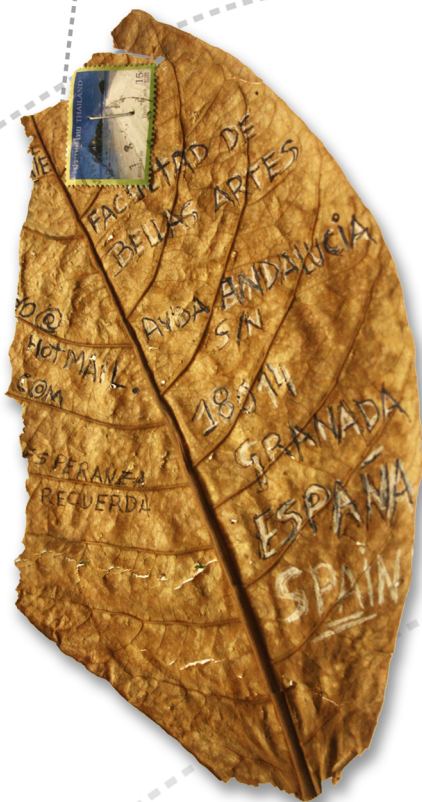 THAILAND
15
FACULTAD DE
BELLAS ARTES
AVDA ANDALUCIA
S/N
18014
GRANADA
ESPAÑA
SPAIN
O@
HOTMAIL.
COM
ESPERANZA
RECUERDA